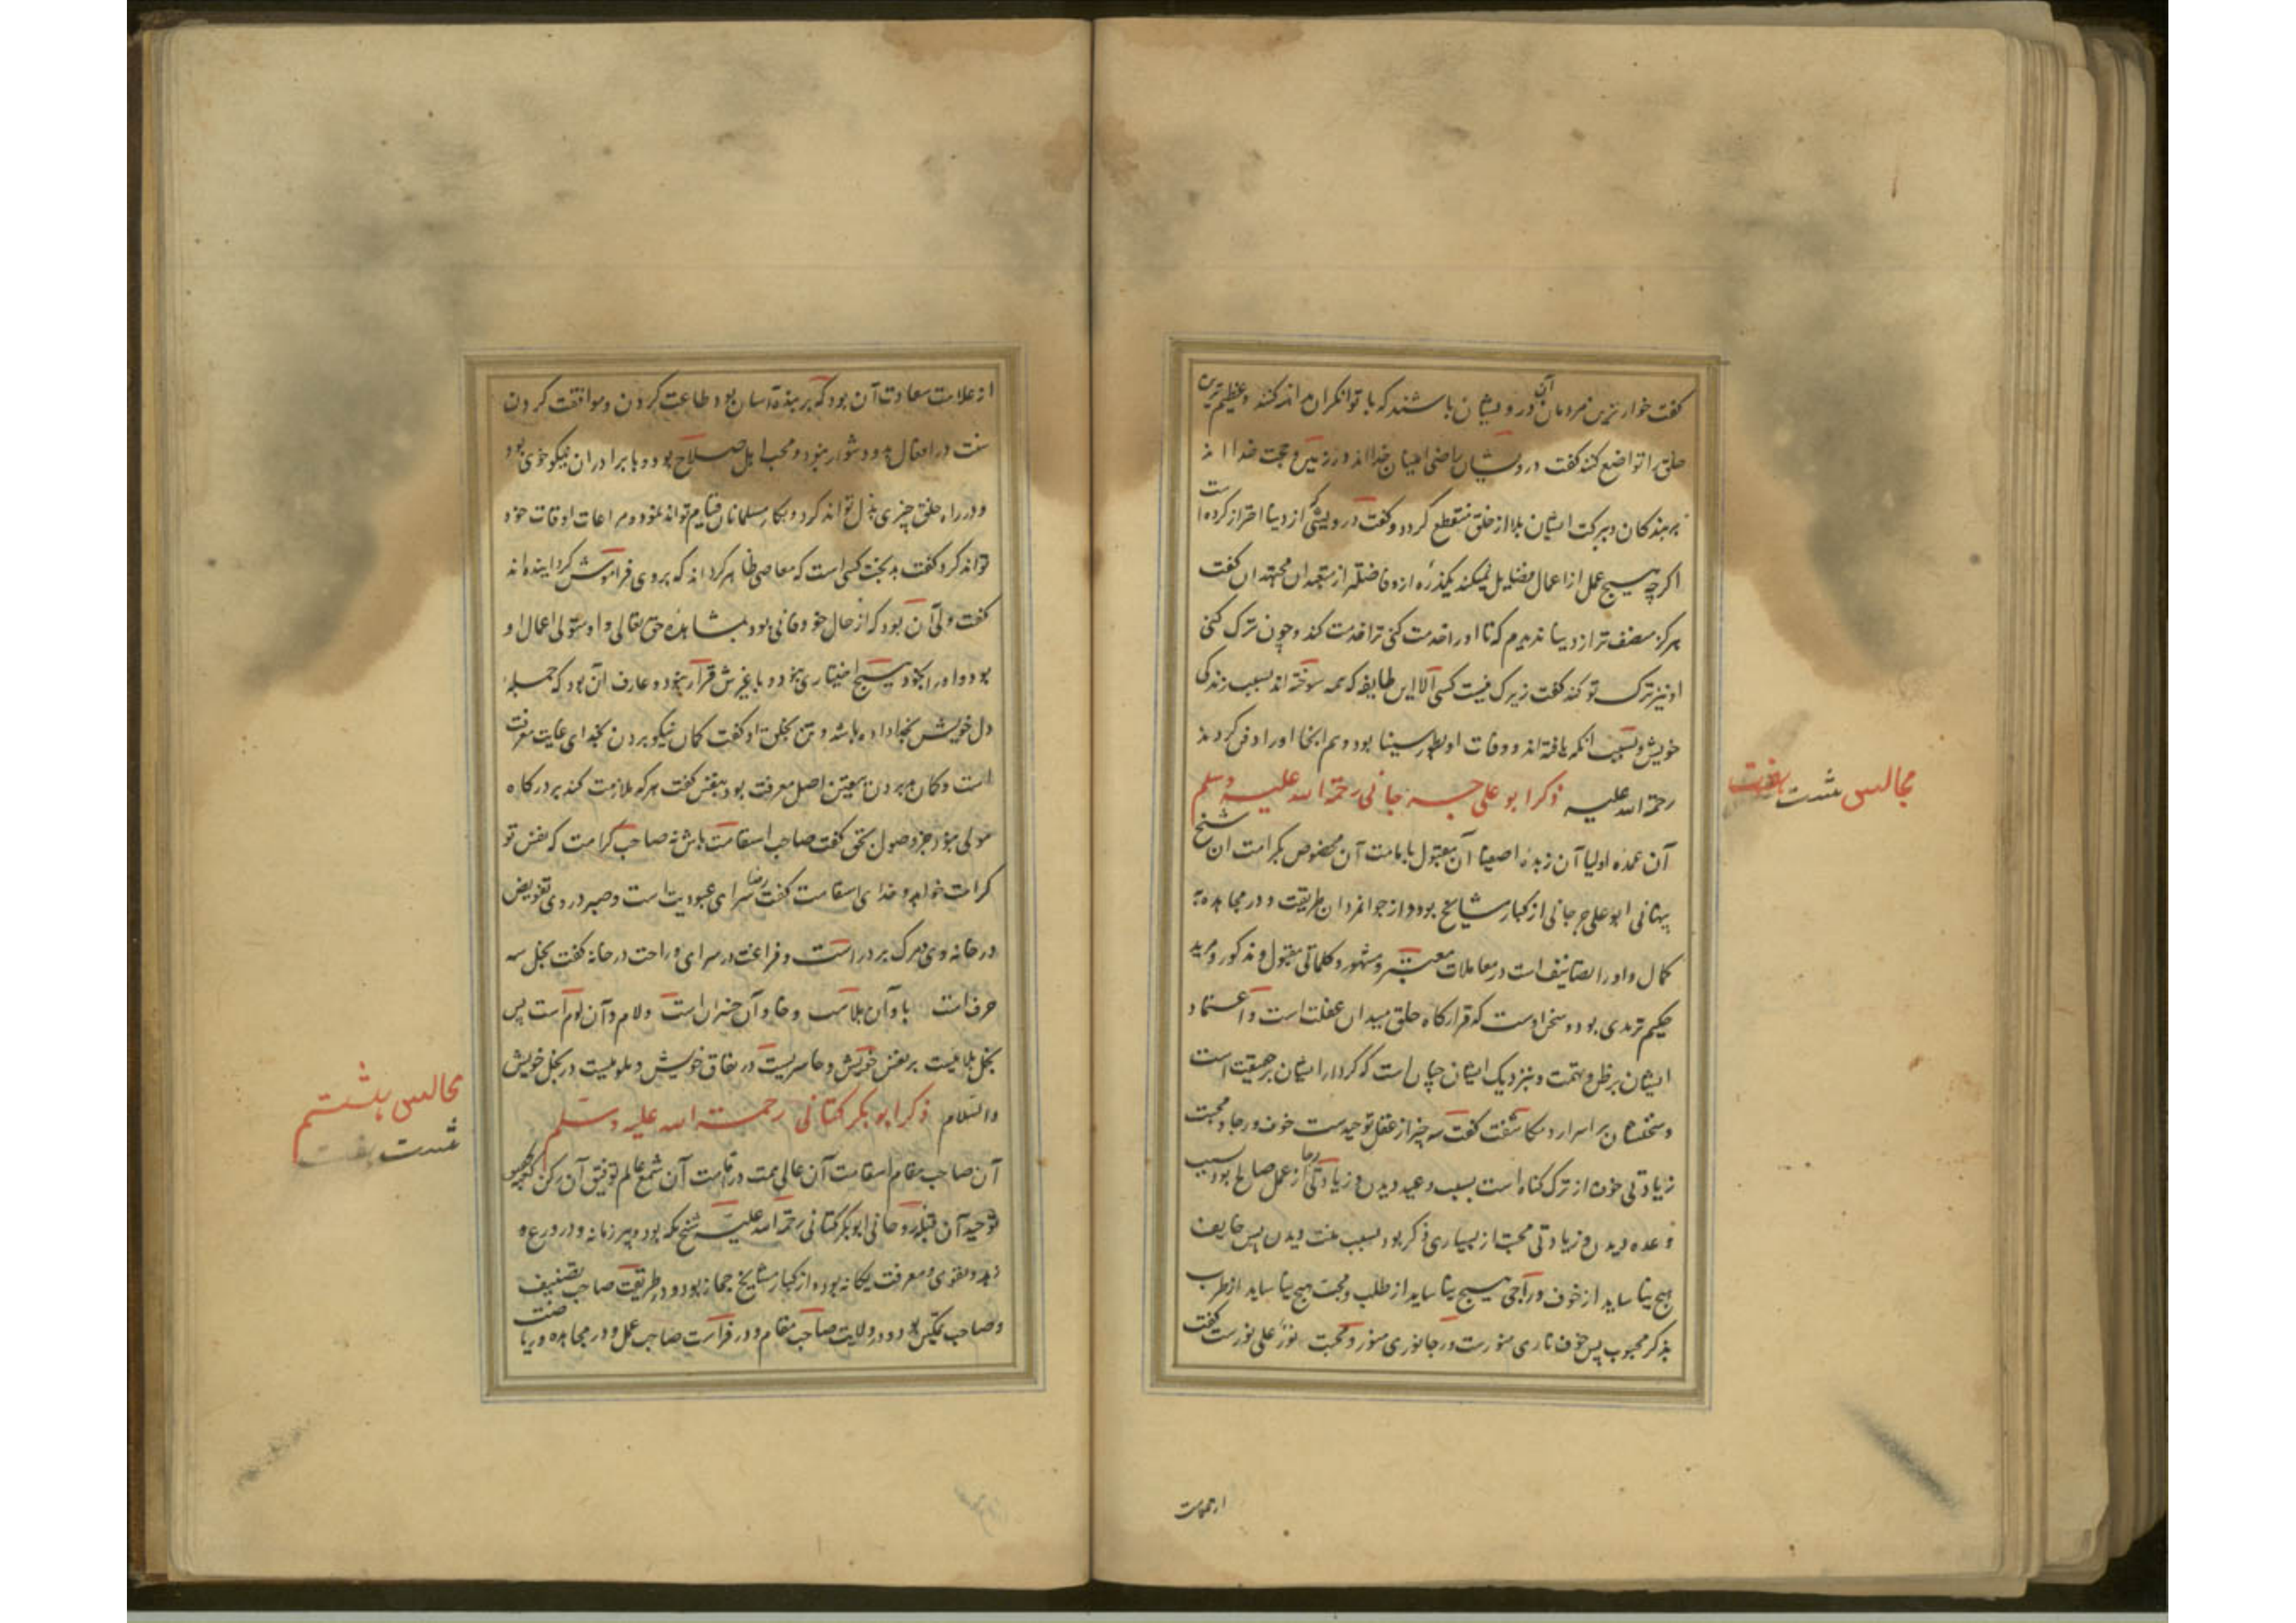 کفت خوارترین مردمان آن درویشان باشند که با توانکران مداهنه کنند و عظیم‌ترین
خلق را تواضع کنند کفت درویشان راضی اعیان خدا اند در زمین و حجت خدا اند
بر بندکان و ببرکت ایشان بلا از خلق منقطع کردد و کفت درویشی که از دنیا احتراز کرده است
اکرچه هیچ عمل از اعمال فضایل نمیکند یکذره ازو فاضلتر از متعبدان مجتهدان کفت
هرکز منصف‌تر از دنیا ندیدم که تا او را خدمت کنی ترا خدمت کند و چون ترک کنی
او نیز ترک تو کند کفت زیرک نیست کسی الا این طایفه که همه سوخته اند بسبب زندکی
خویش و بسبب انکه یافته اند و وفات او بطور سینا بود و هم انجا او را دفن کردند
رحمة الله علیه ذکر ابو علی جرجانی رحمة الله علیه وسلم
مجالس شصت هفت
آن عمده اولیا آن زبده اصفیا آن مقبول آن مخصوص بکرامت ان شیخ
پنهانی ابو علی جرجانی از کبار مشایخ بود و از جوانمردان طریقت و در مجاهده به
کمال و او را تصانیف است در معاملات معتبر و مشهور و کلماتی مقبول و مذکور و مرید
حکیم ترمدی بود و سخن اوست که قرارکاه خلق میدان غفلت است و اعتماد
ایشان بر ظن و تهمت و بنزدیک ایشان چنان است که کردار ایشان بر حقیقت است
و سخنشان بر اسرار و مکاشفت کفت سه چیز از عقل توحید ست خوف و رجا و محبت
زیادتی خوف از ترک کناه است بسبب وعید دیدن و زیادتی رجا از عمل صالح بود بسبب
وعده دیدن و زیادتی محبت از بسیاری ذکر بود بسبب منت دیدن پس خایف
هیچ نیا ساید از خوف و راجی هیچ نیا ساید از طلب و محبت هیچ نیا ساید از طرب
بذکر محبوب پس خوف ناری منورست و رجا نوری منور و محبت نور علی نورست کفت
ازعلامت
از علامت سعادت آن بود که بر بنده آسان بود طاعت کردن و موافقت کردن
سنت در افعال برو دشوار نبود و محب اهل صلاح بود و با برادران نیکو خوی بود
و در راه خلق چیزی بذل تواند کرد و بکار مسلمانان قیام تواند نمود و مراعات اوقات خود
تواند کرد و کفت بدبخت کسی است که معاصی ظاهر کرداند که بر وی فراموش کردانیده اند
کفت ولی آن بود که از حال خود فانی بود بمشاهده حق تعالی و او متولی اعمال او
بود و او را بخود هیچ اختیاری نبود و با غیرش قرار نبود و عارف آن بود که جمله
دل خویش بخدا داده باشد و تن بخلق او کفت کمان نیکو بردن بخدای غایت معرفت
است و کمان بد بردن بنفس اصل معرفت بود بنفس کفت هر که ملازمت کند بر درکاه
مولی نبود جز وصول بحق کفت صاحب استقامت باش نه صاحب کرامت که نفس تو
کرامت خواهد و خدای استقامت کفت رضا سرای عبودیت است و صبر در وی تفویض
در خانه وی مرک بر در است و فراغت در سرای و راحت در خانه کفت بخل سه
حرف است با و آن بلا ست و خا و آن خسران است و لام و آن لوم است پس
بخیل بلائیست بر نفس خویش و خاسریست در نفاق خویش و ملومیست در بخل خویش
والسلام ذکر ابو بکر کتانی رحمة الله علیه وسلم
مجالس هشتم
شصت
آن صاحب مقام استقامت آن عالی همت در آن شمع عالم توفیق آن رکن کعبه
توحید آن قبله روحانی ابوبکر کتانی رحمة الله علیه شیخ مکه بود و پیر زمانه و در ورع و
زهد و تقوی و معرفت یکانه بود و از کبار مشایخ حجاز بود و در طریقت صاحب تصنیف
و صاحب تمکین بود و در ولایت صاحب مقام و در فراست صاحب عمل و در مجاهده و ریا
ضت